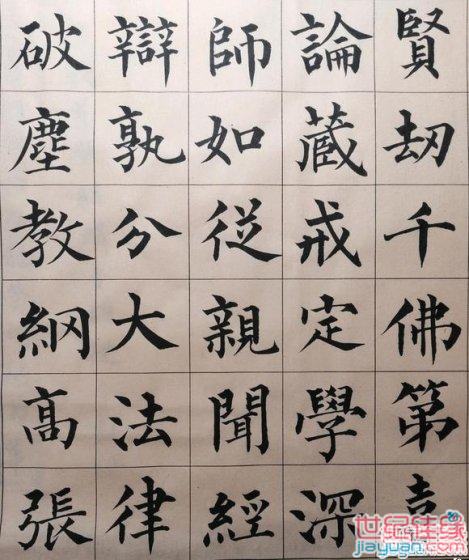 賢劫千佛第
論藏戒定學深
師如從親聞經
辯孰分大法律
破塵教網高張
世纪佳缘
jiayuan.com